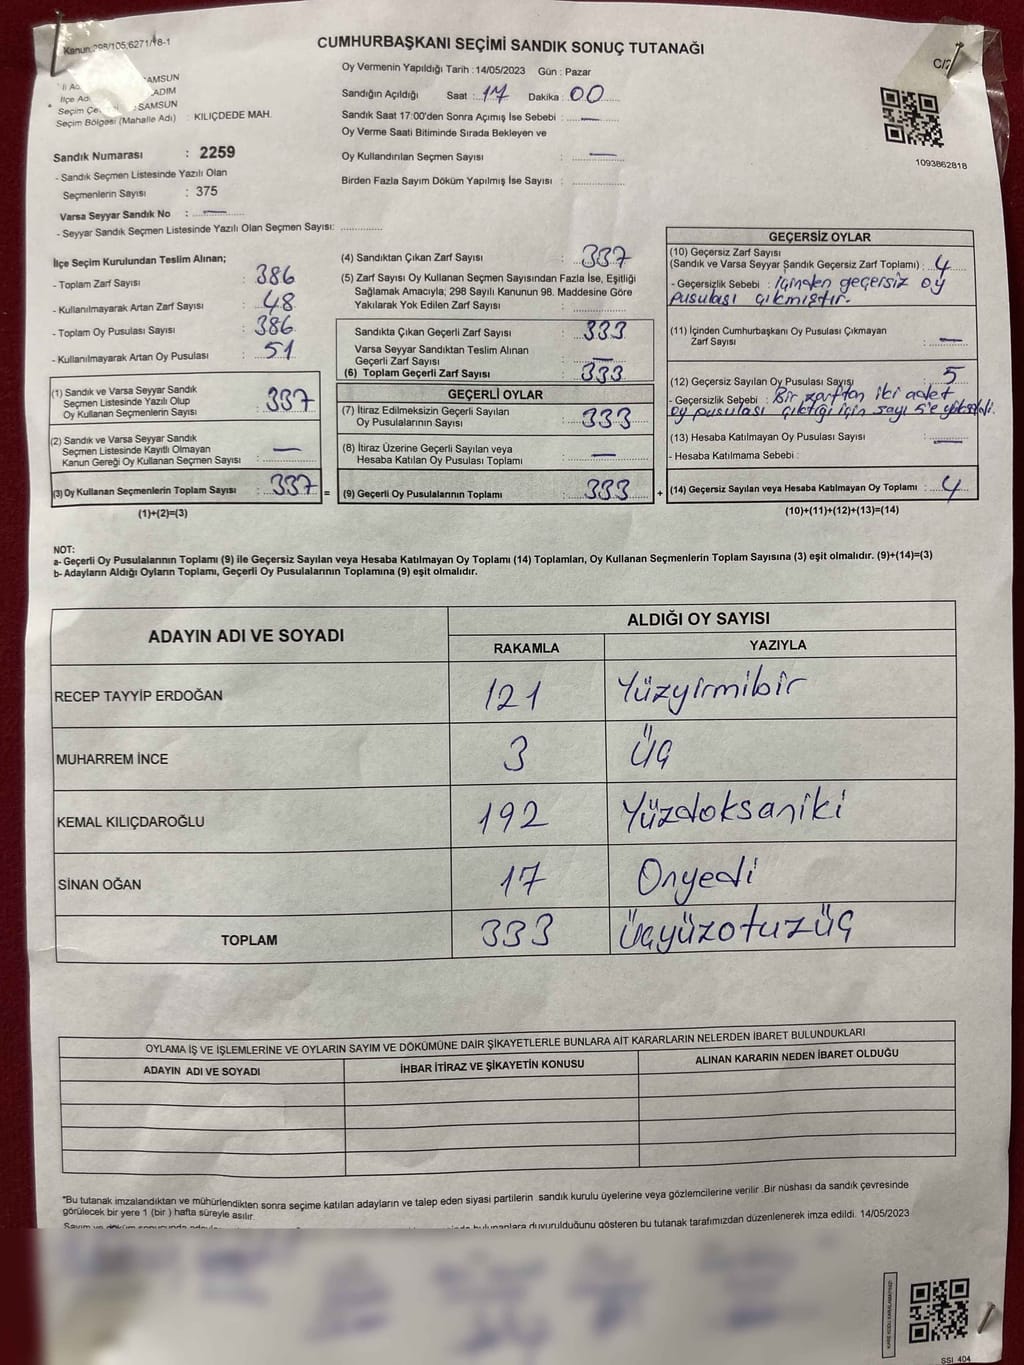 Kanun:298/105,6271/18-1
CUMHURBAŞKANI SEÇİMİ SANDIK SONUÇ TUTANAĞI
Oy Vermenin Yapıldığı Tarih : 14/05/2023 Gün : Pazar
Sandığın Açıldığı Saat : 17 Dakika : 00
Sandık Saat 17:00'den Sonra Açımış İse Sebebi : —
Oy Verme Saati Bitiminde Sırada Bekleyen ve
Oy Kullandırılan Seçmen Sayısı : —
Birden Fazla Sayım Döküm Yapılmış İse Sayısı :
AMSUN
İlçe Ad ADIM
Seçim Çe : SAMSUN
Seçim Bölgesi (Mahalle Adı) : KILIÇDEDE MAH.
Sandık Numarası : 2259
- Sandık Seçmen Listesinde Yazılı Olan
Seçmenlerin Sayısı : 375
Varsa Seyyar Sandık No : —
- Seyyar Sandık Seçmen Listesinde Yazılı Olan Seçmen Sayısı:
1093862818
İlçe Seçim Kurulundan Teslim Alınan;
- Toplam Zarf Sayısı : 386
- Kullanılmayarak Artan Zarf Sayısı : 48
- Toplam Oy Pusulası Sayısı : 386
- Kullanılmayarak Artan Oy Pusulası : 51
(1) Sandık ve Varsa Seyyar Sandık
Seçmen Listesinde Yazılı Olup
Oy Kullanan Seçmenlerin Sayısı : 337
(2) Sandık ve Varsa Seyyar Sandık
Seçmen Listesinde Kayıtlı Olmayan
Kanun Gereği Oy Kullanan Seçmen Sayısı : —
(3) Oy Kullanan Seçmenlerin Toplam Sayısı : 337 =
(1)+(2)=(3)
(4) Sandıktan Çıkan Zarf Sayısı : 337
(5) Zarf Sayısı Oy Kullanan Seçmen Sayısından Fazla İse, Eşitliği
Sağlamak Amacıyla; 298 Sayılı Kanunun 98. Maddesine Göre
Yakılarak Yok Edilen Zarf Sayısı :
Sandıkta Çıkan Geçerli Zarf Sayısı : 333
Varsa Seyyar Sandıktan Teslim Alınan
Geçerli Zarf Sayısı : —
(6) Toplam Geçerli Zarf Sayısı : 333
GEÇERLİ OYLAR
(7) İtiraz Edilmeksizin Geçerli Sayılan
Oy Pusulalarının Sayısı : 333
(8) İtiraz Üzerine Geçerli Sayılan veya
Hesaba Katılan Oy Pusulası Toplamı : —
(9) Geçerli Oy Pusulalarının Toplamı : 333 +
GEÇERSİZ OYLAR
(10) Geçersiz Zarf Sayısı
(Sandık ve Varsa Seyyar Sandık Geçersiz Zarf Toplamı) : 4
- Geçersizlik Sebebi : İçinden geçersiz oy
pusulası çıkmıştır.
(11) İçinden Cumhurbaşkanı Oy Pusulası Çıkmayan
Zarf Sayısı : —
(12) Geçersiz Sayılan Oy Pusulası Sayısı : 5
- Geçersizlik Sebebi : Bir zarftan iki adet
oy pusulası çıktığı için sayı 5'e yükseldi.
(13) Hesaba Katılmayan Oy Pusulası Sayısı : —
- Hesaba Katılmama Sebebi :
(14) Geçersiz Sayılan veya Hesaba Katılmayan Oy Toplamı : 4
(10)+(11)+(12)+(13)=(14)
NOT:
a- Geçerli Oy Pusulalarının Toplamı (9) ile Geçersiz Sayılan veya Hesaba Katılmayan Oy Toplamı (14) Toplamları, Oy Kullanan Seçmenlerin Toplam Sayısına (3) eşit olmalıdır. (9)+(14)=(3)
b- Adayların Aldığı Oyların Toplamı, Geçerli Oy Pusulalarının Toplamına (9) eşit olmalıdır.
ADAYIN ADI VE SOYADI ALDIĞI OY SAYISI
RAKAMLA YAZIYLA
RECEP TAYYİP ERDOĞAN 121 Yüzyirmibir
MUHARREM İNCE 3 Üç
KEMAL KILIÇDAROĞLU 192 Yüzdoksaniki
SİNAN OĞAN 17 Onyedi
TOPLAM 333 Üçyüzotuzüç
OYLAMA İŞ VE İŞLEMLERİNE VE OYLARIN SAYIM VE DÖKÜMÜNE DAİR ŞİKAYETLERLE BUNLARA AİT KARARLARIN NELERDEN İBARET BULUNDUKLARI
ADAYIN ADI VE SOYADI İHBAR İTİRAZ VE ŞİKAYETİN KONUSU ALINAN KARARIN NEDEN İBARET OLDUĞU
"Bu tutanak imzalandıktan ve mühürlendikten sonra seçime katılan adayların ve talep eden siyasi partilerin sandık kurulu üyelerine veya gözlemcilerine verilir .Bir nüshası da sandık çevresinde
görülecek bir yere 1 (bir ) hafta süreyle asılır.
bulunanlara duyurulduğunu gösteren bu tutanak tarafımızdan düzenlenerek imza edildi. 14/05/2023
SSI_404